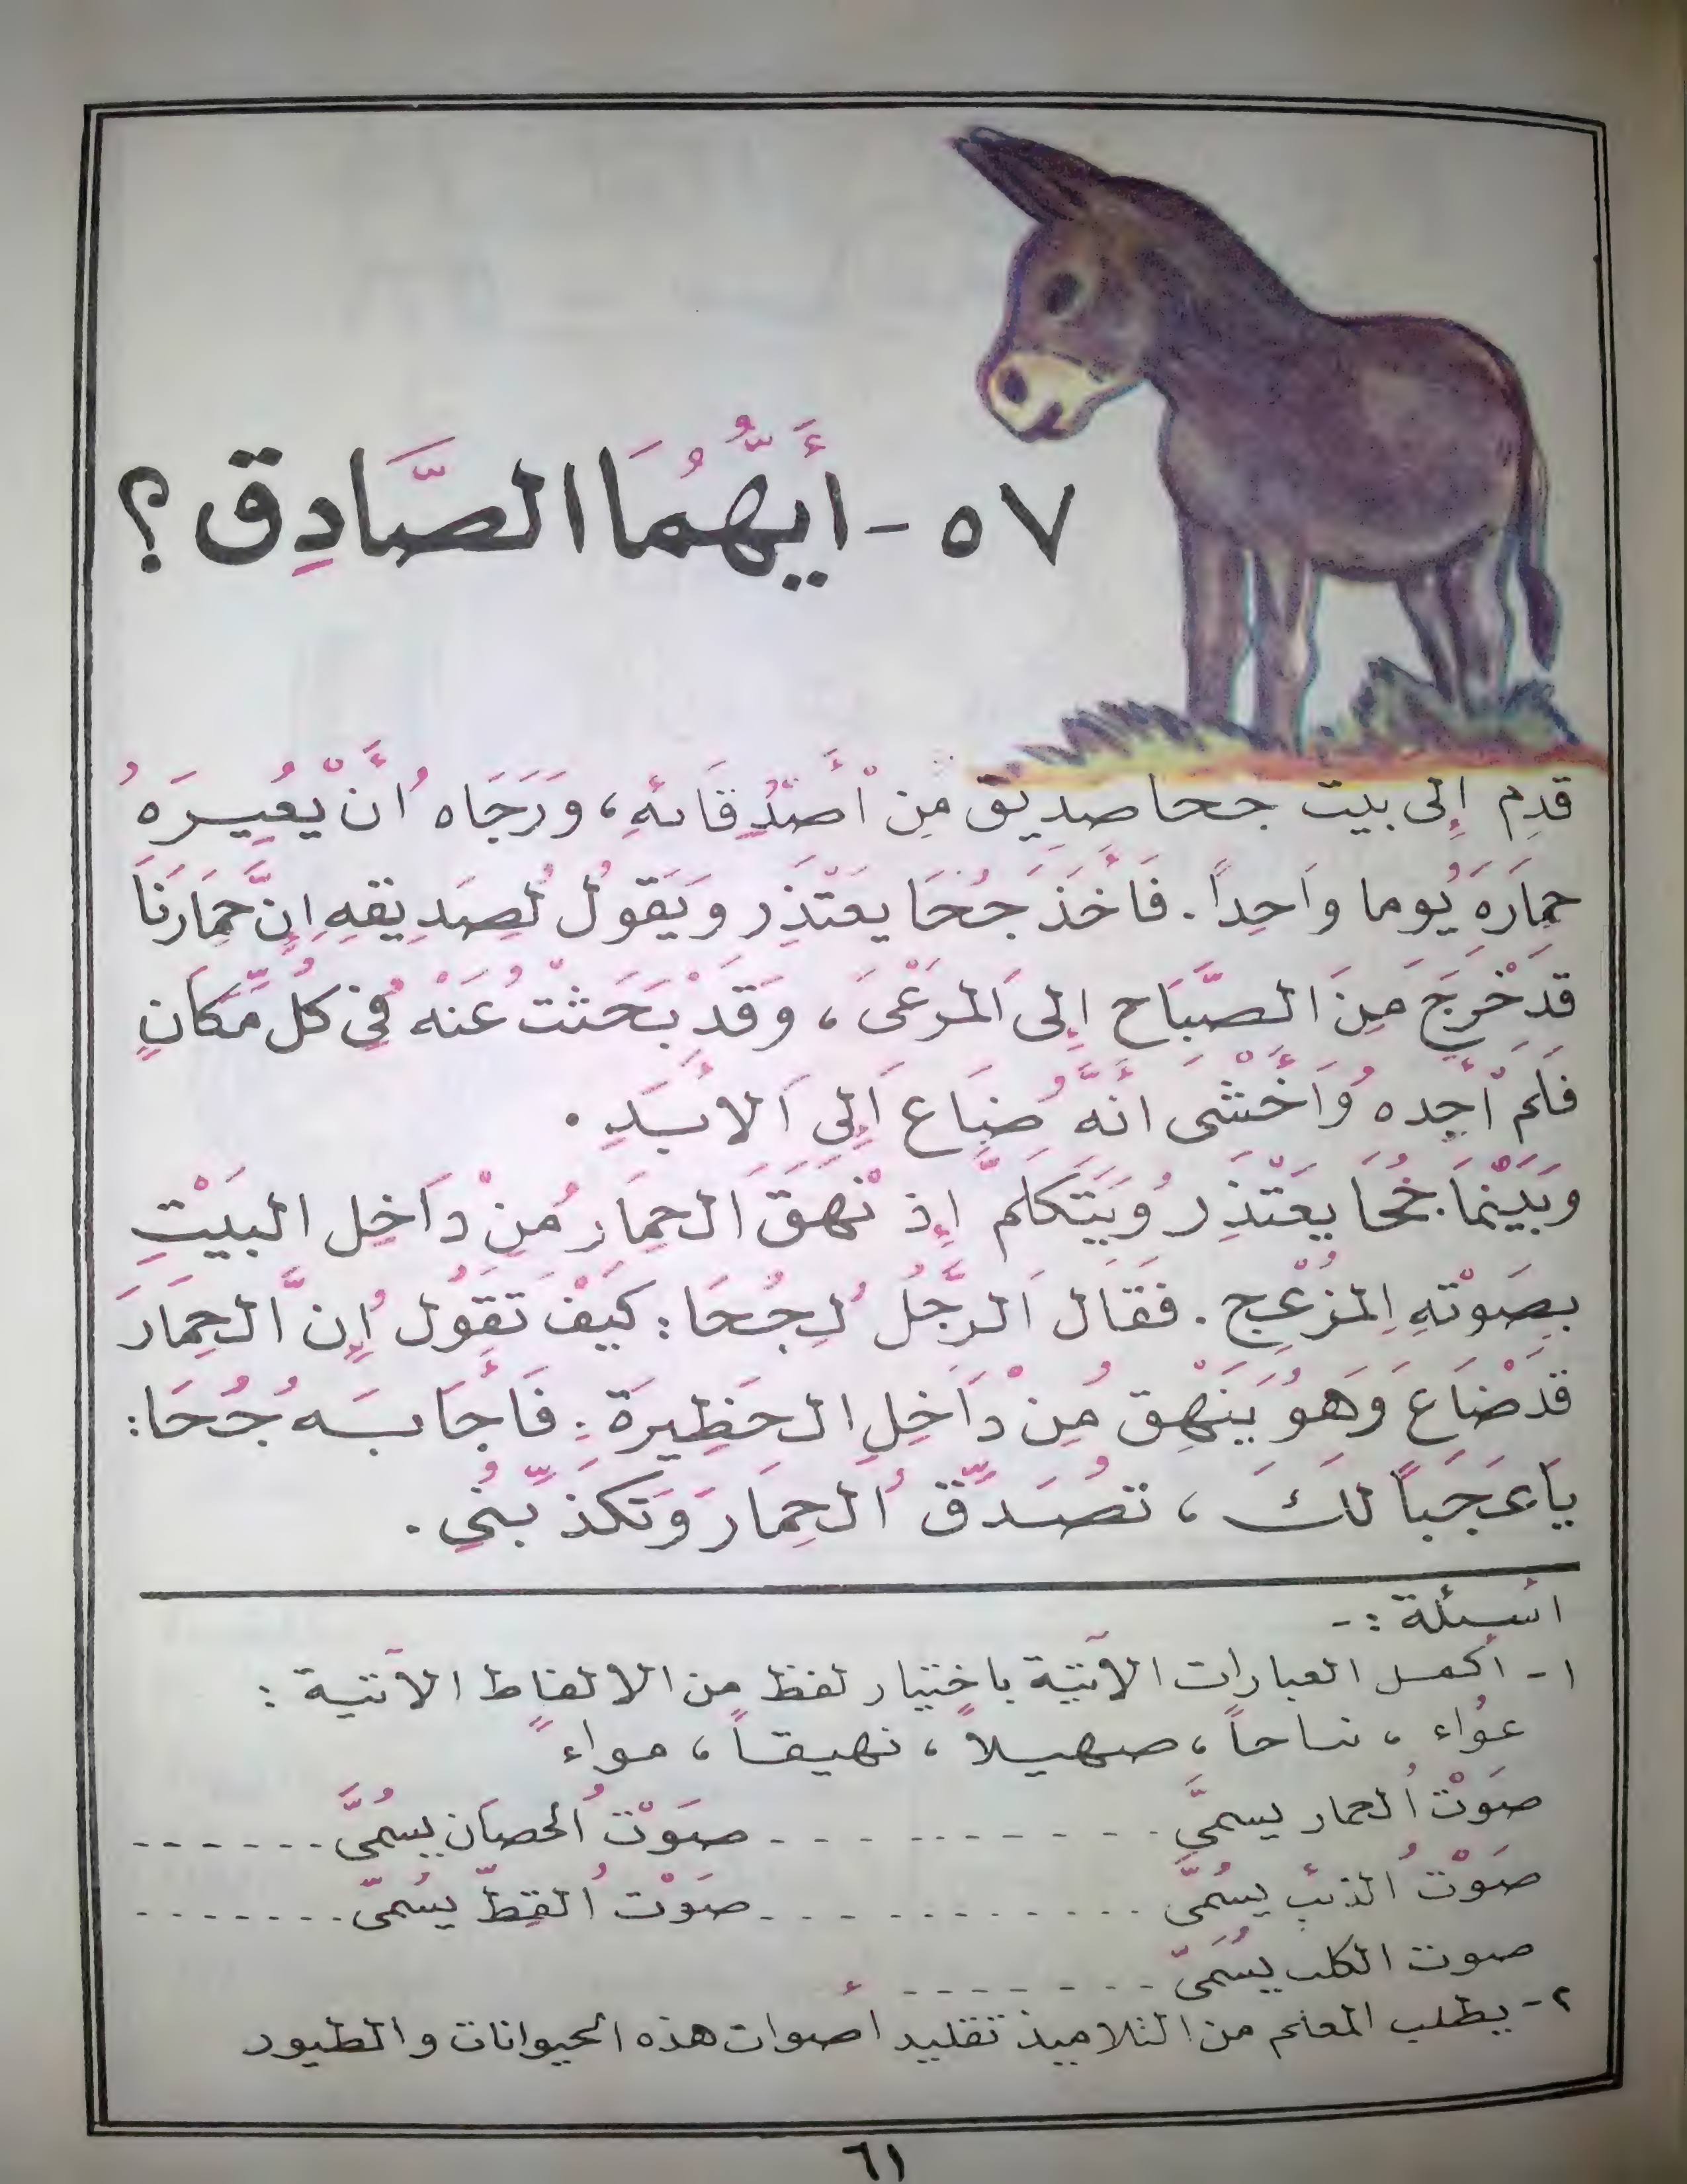 ٥٧ - أَيُّهُمَا الصَّادِق ؟
قدِم إِلى بيت جحا صِدِيق مِن أَصْدِقَائهِ ، وَرَجَاه أَنْ يُعِيرَهُ
حِمَارَهَ يُوما واَحِداً . فَأَخَذَ جُحَا يعْتَذِر وَيَقوُل لِصَدِيقهِ إِنَّ حِمَارَنَا
قدِ خْرجَ مِنَ الصَّبَاح إِلى اَلمرَعْىَ ، وَقَدْ بَحَثْت عَنْهُ فيِ كلُ مّكَانٍ
فلَم أجِده وُأَخْشَى أنَّهُ ضَاع إَلِى اَلأبَدِ .
وَبَيْنَمَا جُحَا يعْتَذِر وُيَتَكلَمَّ إِذ نْهَقَ اَلحِمَار مُنِ داَخِل البيْتِ
بصَوْتهِ اِلمزُعْج . فقَال اَلرَّجُلُ لجِحُا : كيَفْ تَقوُل إِن اَّلحِمَارَ
قدَ ضْاعَ وَهو يُنَهْقِ مُنِ داَخِلِ الحَظِيرَة ؟ فَأجَابَه جُحَا :
يَا عَجَباً لكَ ، تصُدَّق اُلحِمَار وَتكذّبنُيِ .
اسئلة : -
١ - أكمل العبارات الآتية باختيار لفظ من الالفاظ الآتية :
عُواء ، نباحاً ، صهيلاً ، نهيقاً ، مواءً
صَوْت اُلحمار يسمىَّ - - - - - - - - - - - - صَوْت اُلحصَان يسُمىَّ - - - - - - -
صَوْت اُلذئب يسُمىَّ - - - - - - - - - - - - صَوْت اُلقِطّ يسُمىّ - - - - - - - -
صوت الكلب يسُمَىّ - - - - - - - -
٢ - يطلب المعلم من التلاميذ تقليد أصوات هذه الحيوانات والطيور
٦١